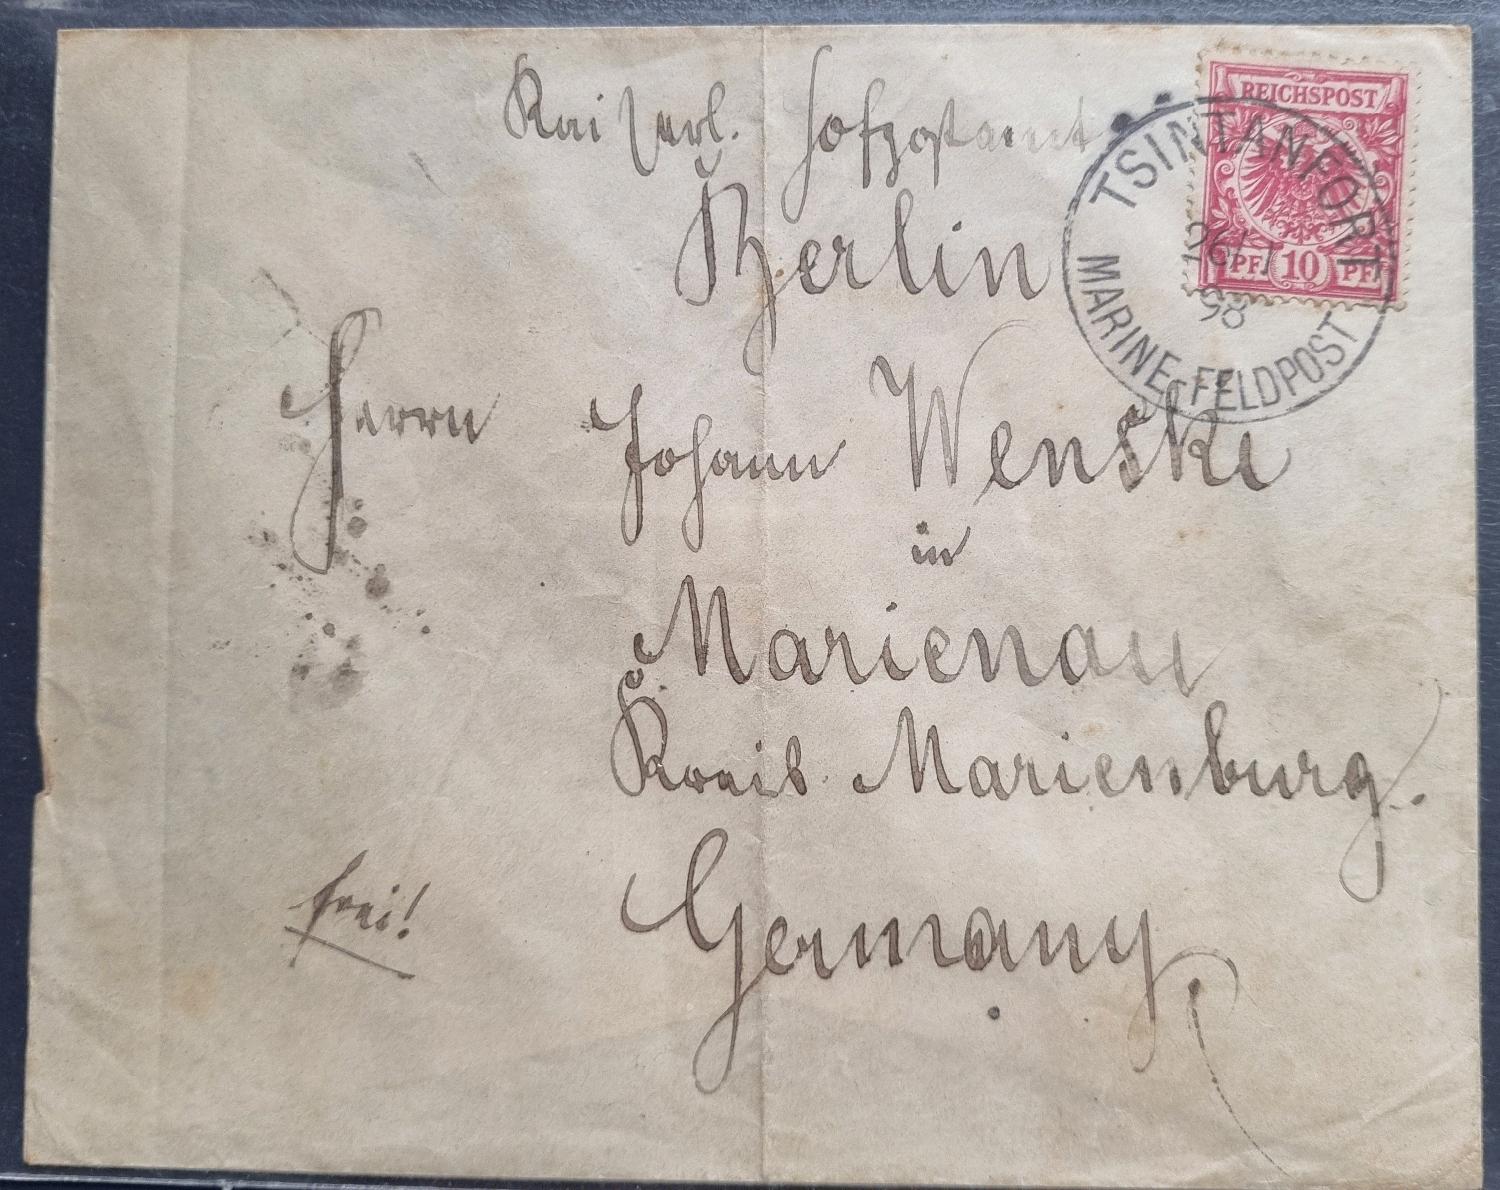 Kaiserl. Hofpostamt
Berlin
REICHSPOST
PF. 10 PF.
TSINTANFORT
26/1
98
MARINE-FELDPOST
Herrn Johann Wenski
in
Marienau
Kreis Marienburg.
frei!
Germany